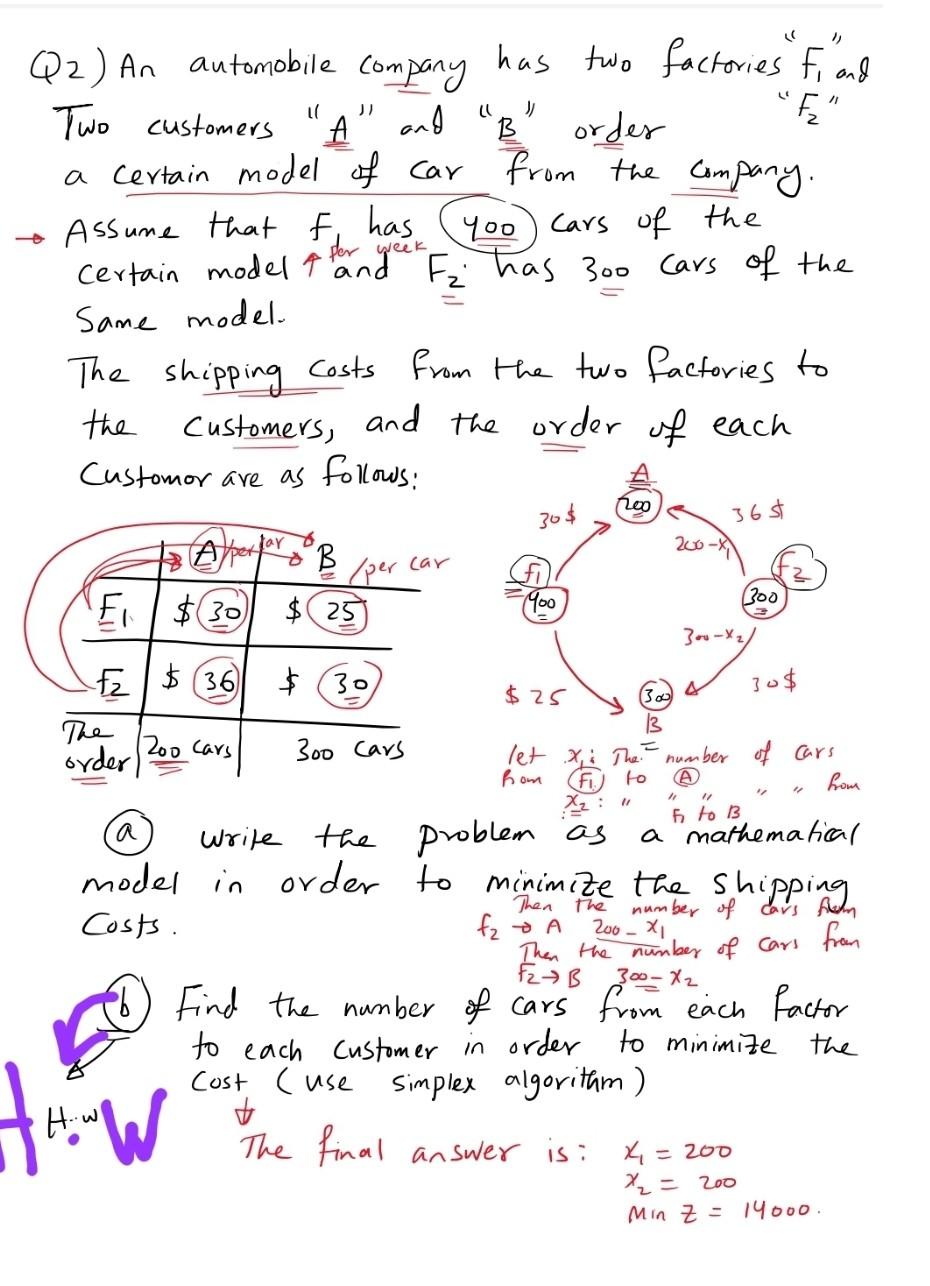 Q2) An automobile company has two factories "F1" and "F2"
Two customers "A" and "B" order
a certain model of car from the company.
→ Assume that F1 has 400 cars of the
per week
certain model ↑ and F2 has 300 cars of the
Same model.
The shipping costs from the two factories to
the customers, and the order of each
Customor are as follows:
A /per car B /per car
F1 $ 30 $ 25
F2 $ 36 $ 30
The order 200 cars 300 cars
A
200
30$
36$
200-x1
F1
400
F2
300
300-x2
$ 25
30$
300
B
let x1: The number of cars
from F1 to A
x2: " " " " " from
F1 to B
(a) write the problem as a mathematical
model in order to minimize the shipping
Costs.
Then the number of cars from
F2 → A 200-x1
Then the number of cars from
F2 → B 300-x2
(b) Find the number of cars from each factor
to each customer in order to minimize the
Cost (use simplex algorithm)
H.w
H.W
The final answer is: x1 = 200
x2 = 200
Min Z = 14000.